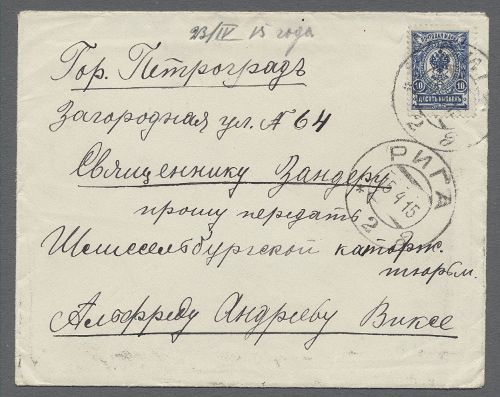 23/IV 15 года
Гор. Петроградъ
Загородная ул. № 64
Священнику Зандеру
прошу передать
Шлиссельбургской каторж.
тюрьм.
Альфреду Андрееву Виксе
10 10
ДЕСЯТЬ КОПѢЕКЪ
РИГА
4 15